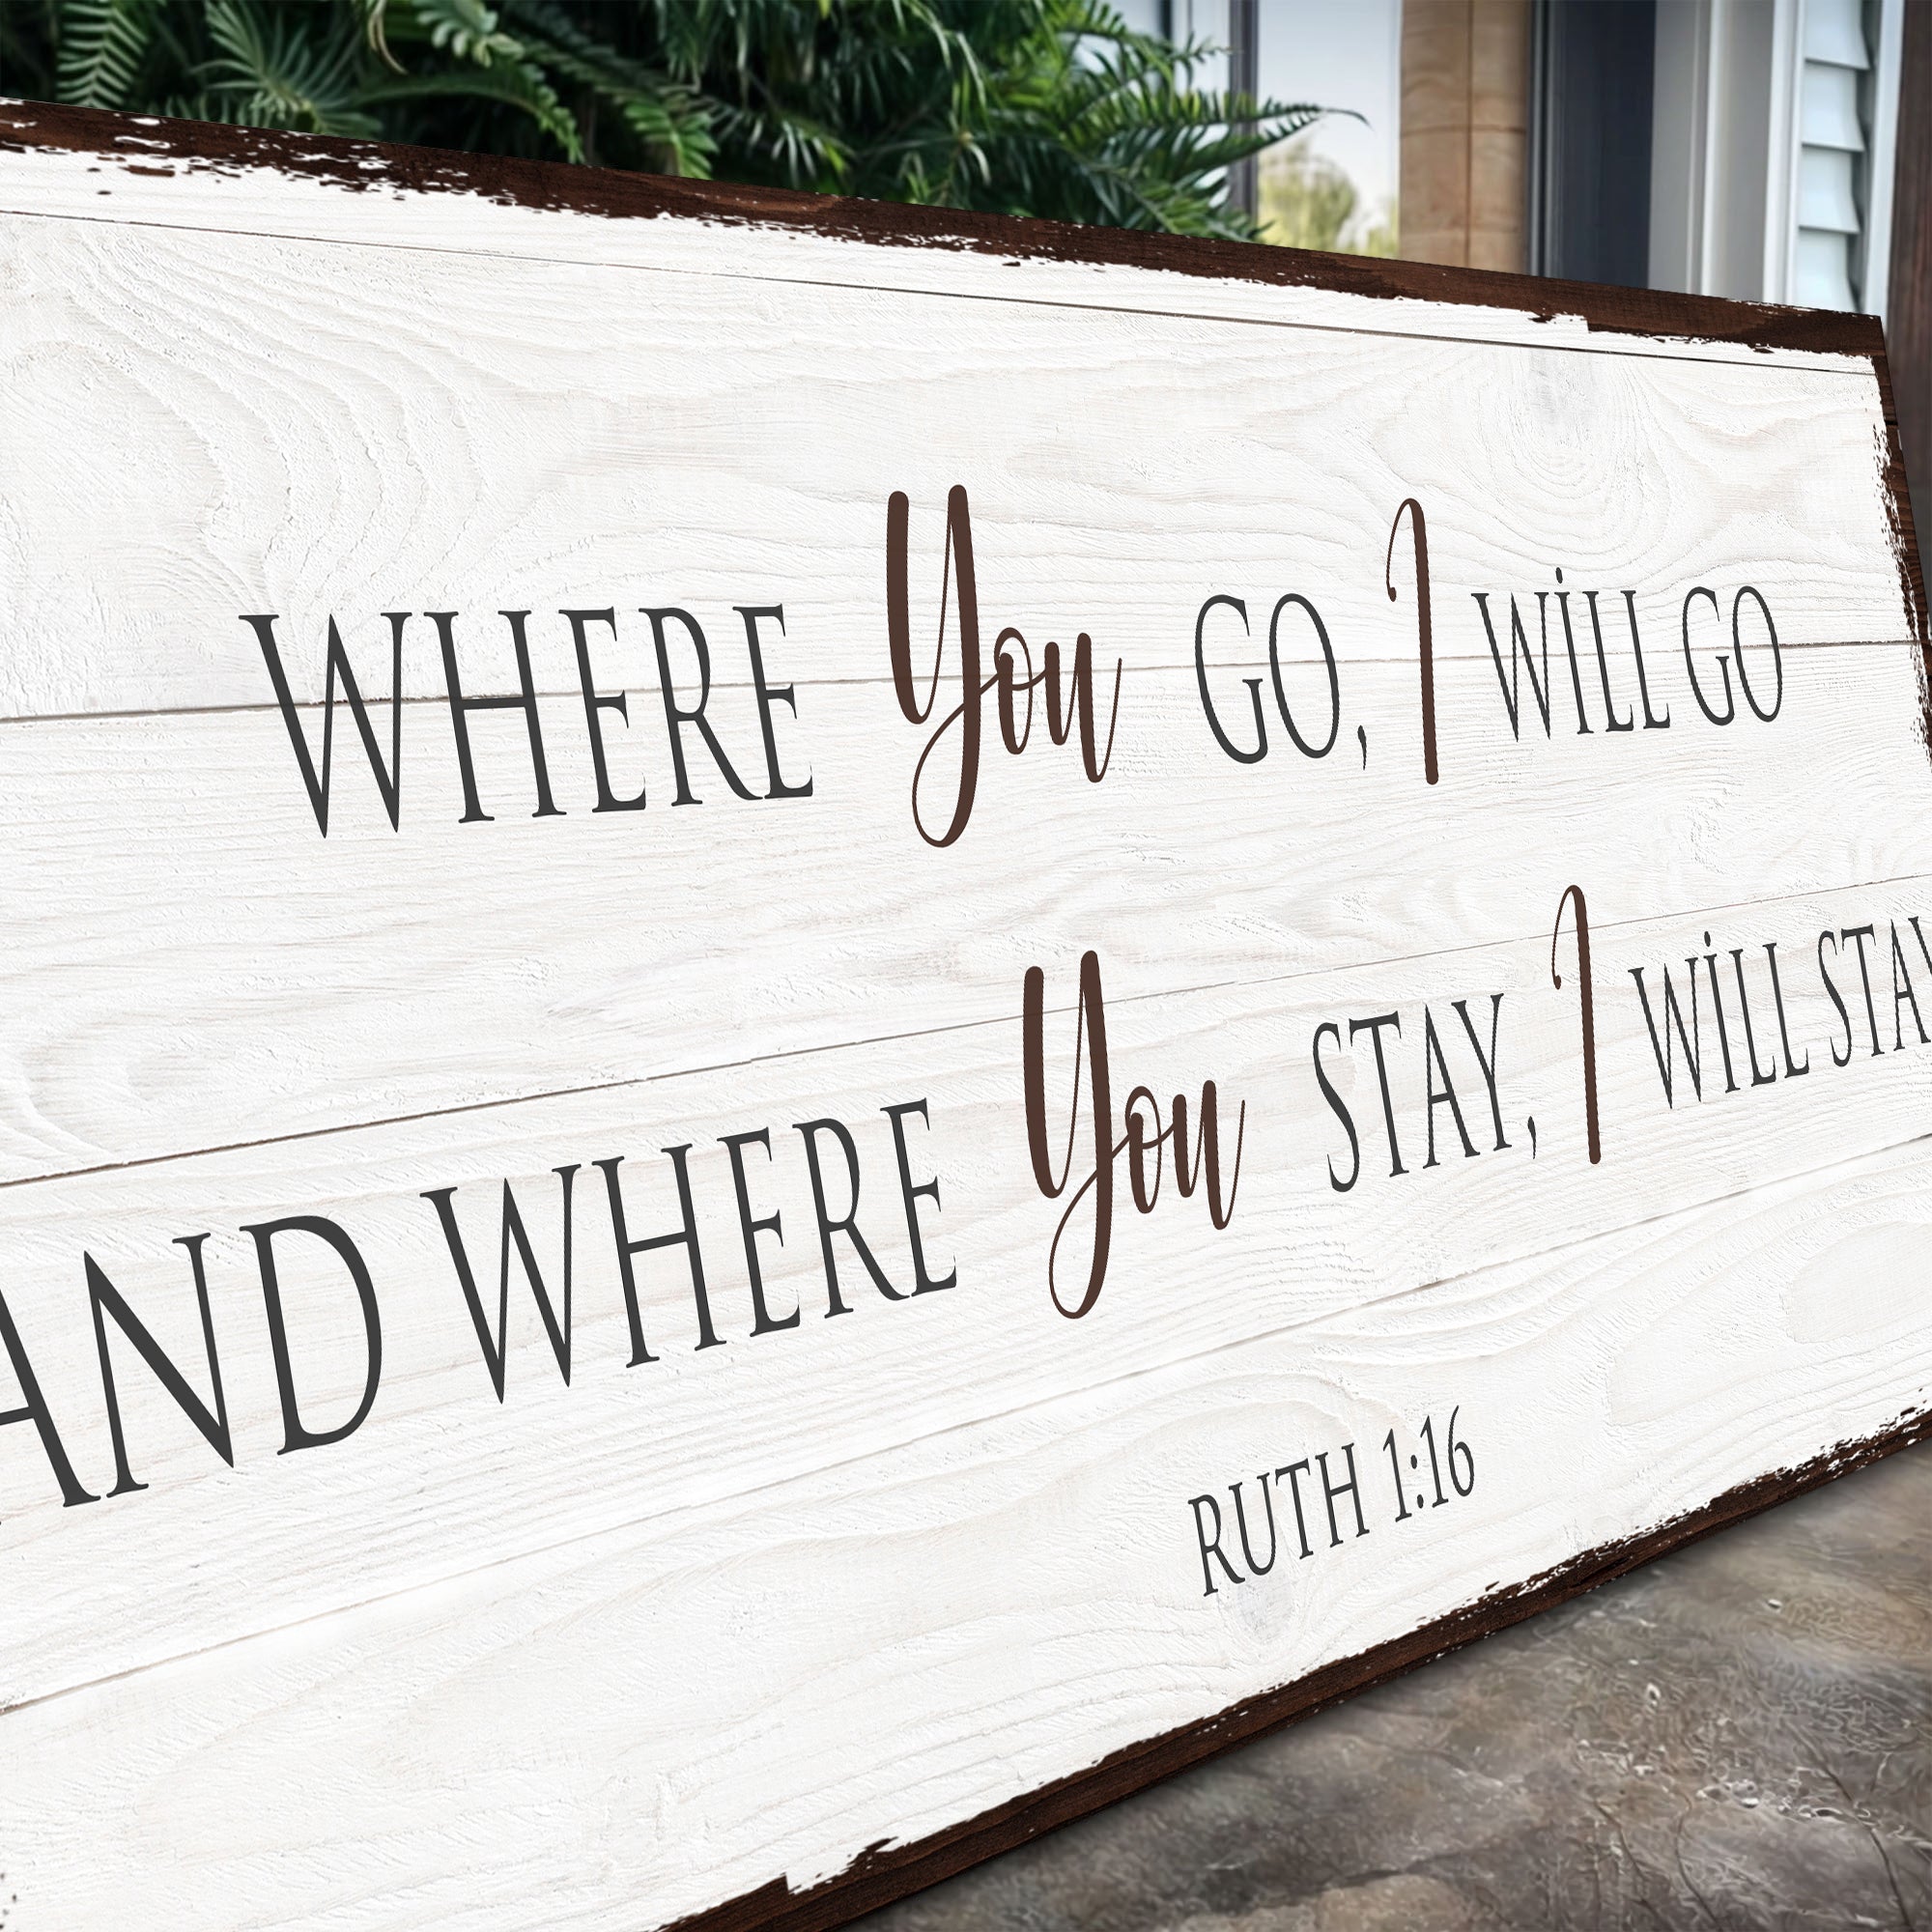 WHERE You GO, I WİLL GO
AND WHERE You STAY, I WİLL STAY
RUTH 1:16